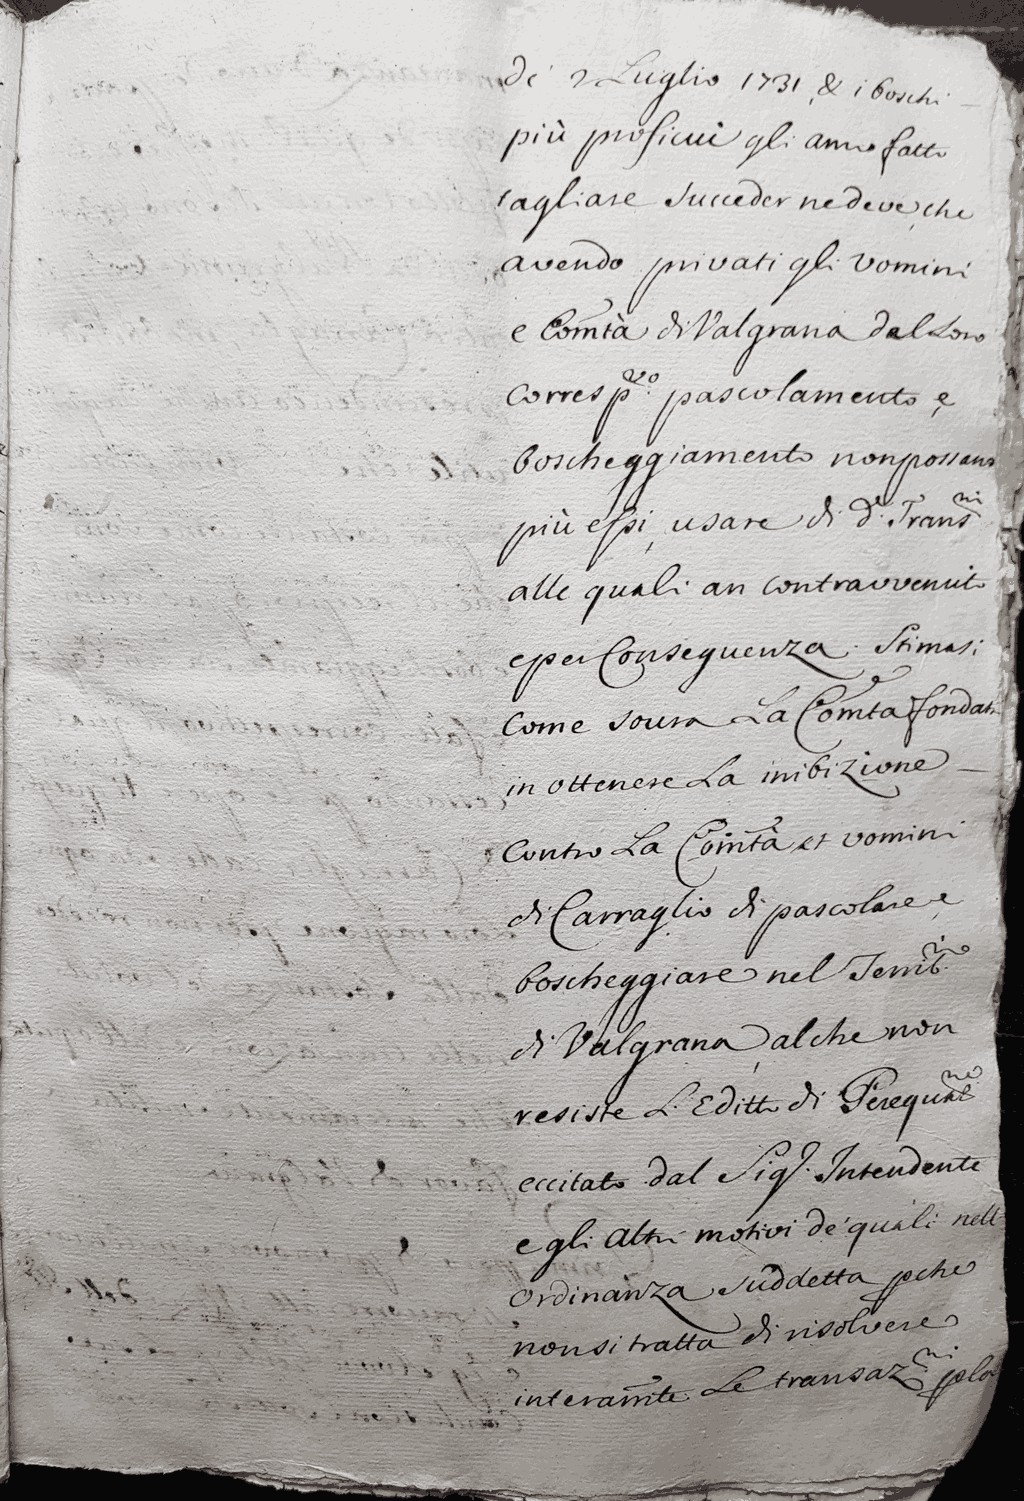 de' 2 Luglio 1731, & i boschi
più proficui gli anno fatto
tagliare succeder ne deve, che
avendo privati gli vomini
e Com̃tà di Valgrana dal Loro
corresp.vo pascolamento e
boscheggiamento non possano
più essi, usare di d.e Trans.ni
alle quali an contravvenuto
e per Conseguenza stimasi
Come soura La Com̃tà fondata
in ottenere La inibizione
Contro La Com̃tà et vomini
di Carraglio di pascolare e
boscheggiare nel Territ.rio
di Valgrana, al che non
resiste L'Editto di Perequaz.ne
eccitato dal Sig.r Intendente
e gli altri motivi de' quali nell
ordinanza suddetta pche
non si tratta di risolvere
interam̃te Le transaz.ni p la